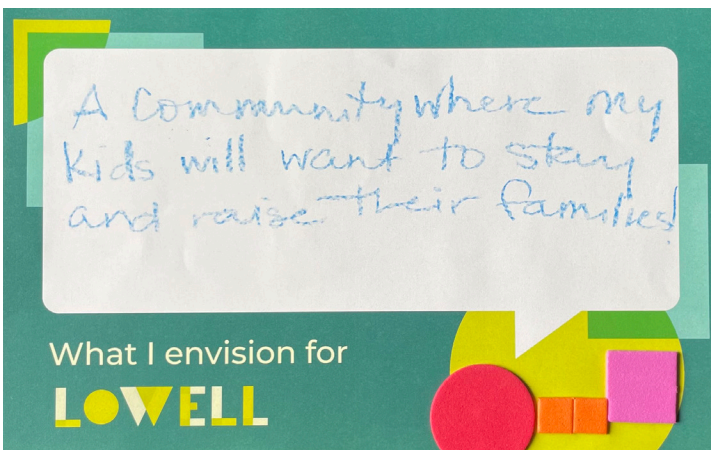 A community where my
kids will want to stay
and raise their families!
What I envision for
LOWELL